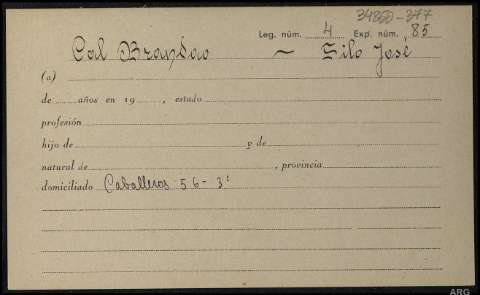 Leg. núm. 4 Exp. núm. 85
Cal Brandao ~ Silo José
(a)
de años en 19 , estado
profesión
hijo de y de
natural de , provincia
domiciliado Caballeros 56-3º
ARG